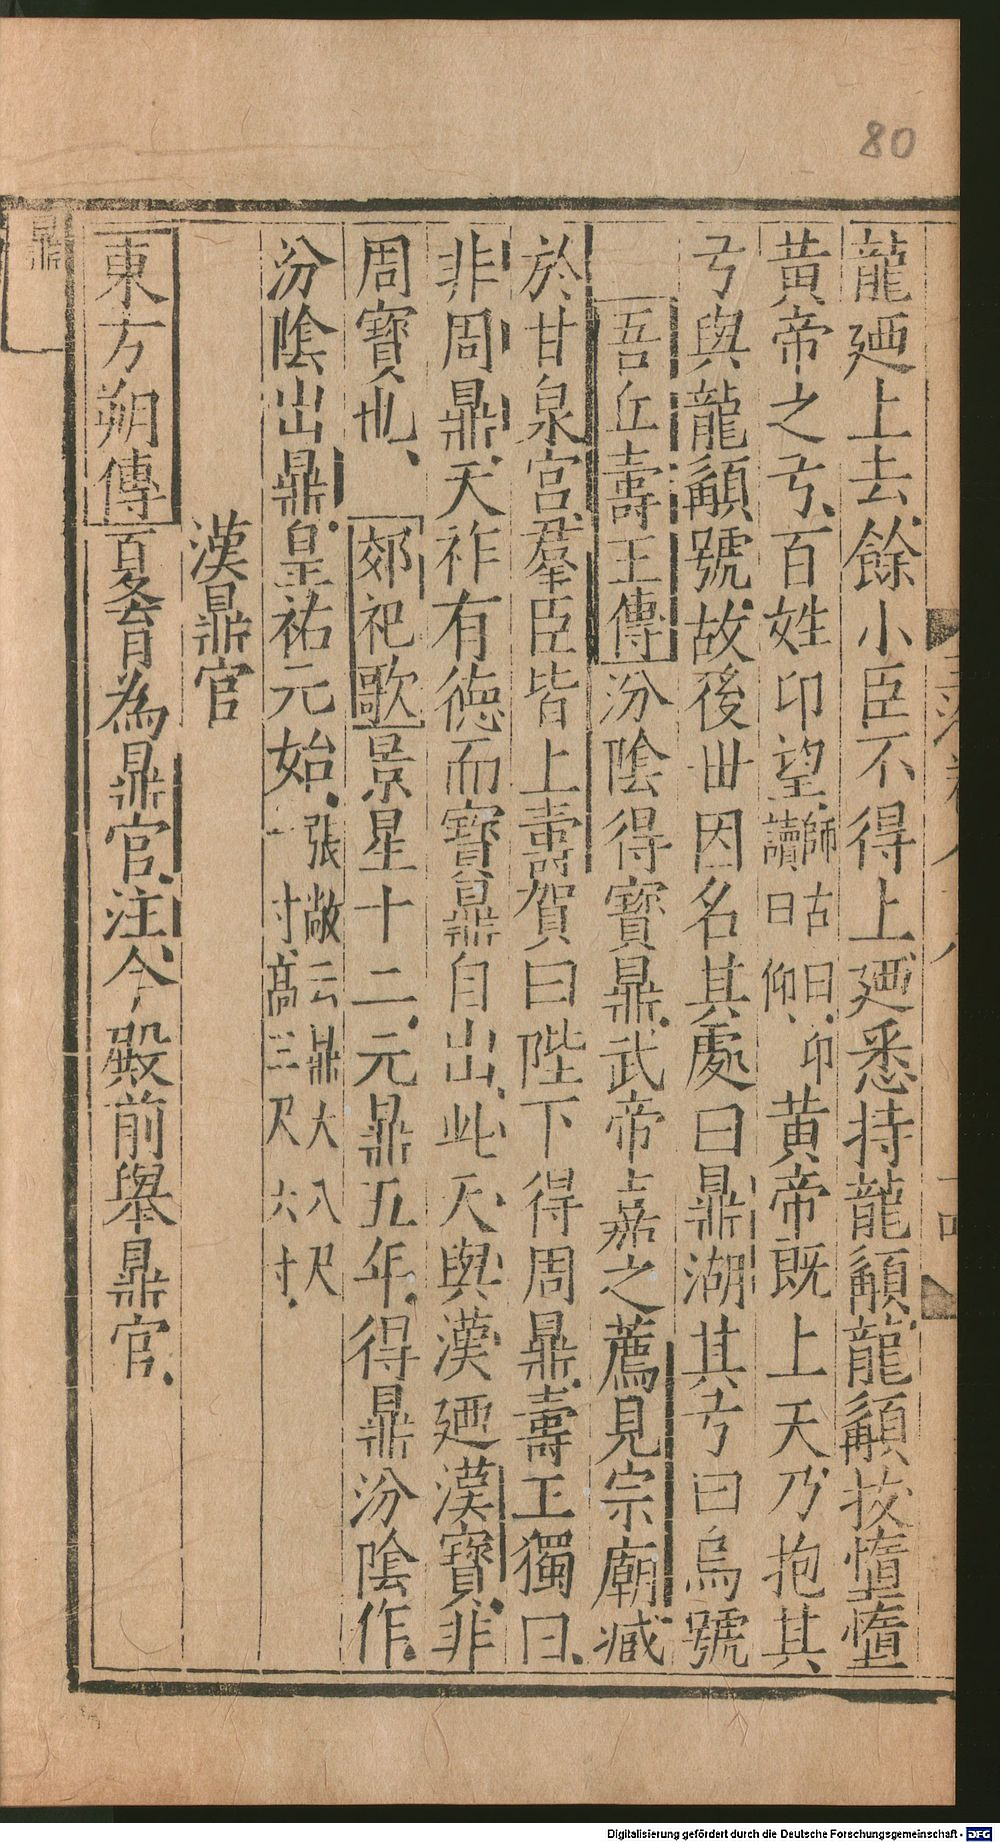 80
龍廼上去餘小臣不得上廼悉持龍顉龍顉拔墮墮
黃帝之弓百姓卬望師古曰卬讀曰仰黃帝既上天乃抱其
弓與龍顉號故後世因名其處曰鼎湖其弓曰烏號
吾丘壽王傳汾陰得寶鼎武帝嘉之薦見宗廟臧
於甘泉宮羣臣皆上壽賀曰陛下得周鼎壽王獨曰
非周鼎天祚有德而寶鼎自出此天與漢廼漢寶非
周寶也郊祀歌景星十二元鼎五年得鼎汾陰作
汾陰出鼎皇祐元始張敞云鼎大八尺一寸高三尺六寸
漢鼎官
東方朔傳夏育為鼎官注今殿前舉鼎官
鼎
Digitalisierung gefördert durch die Deutsche Forschungsgemeinschaft - DFG